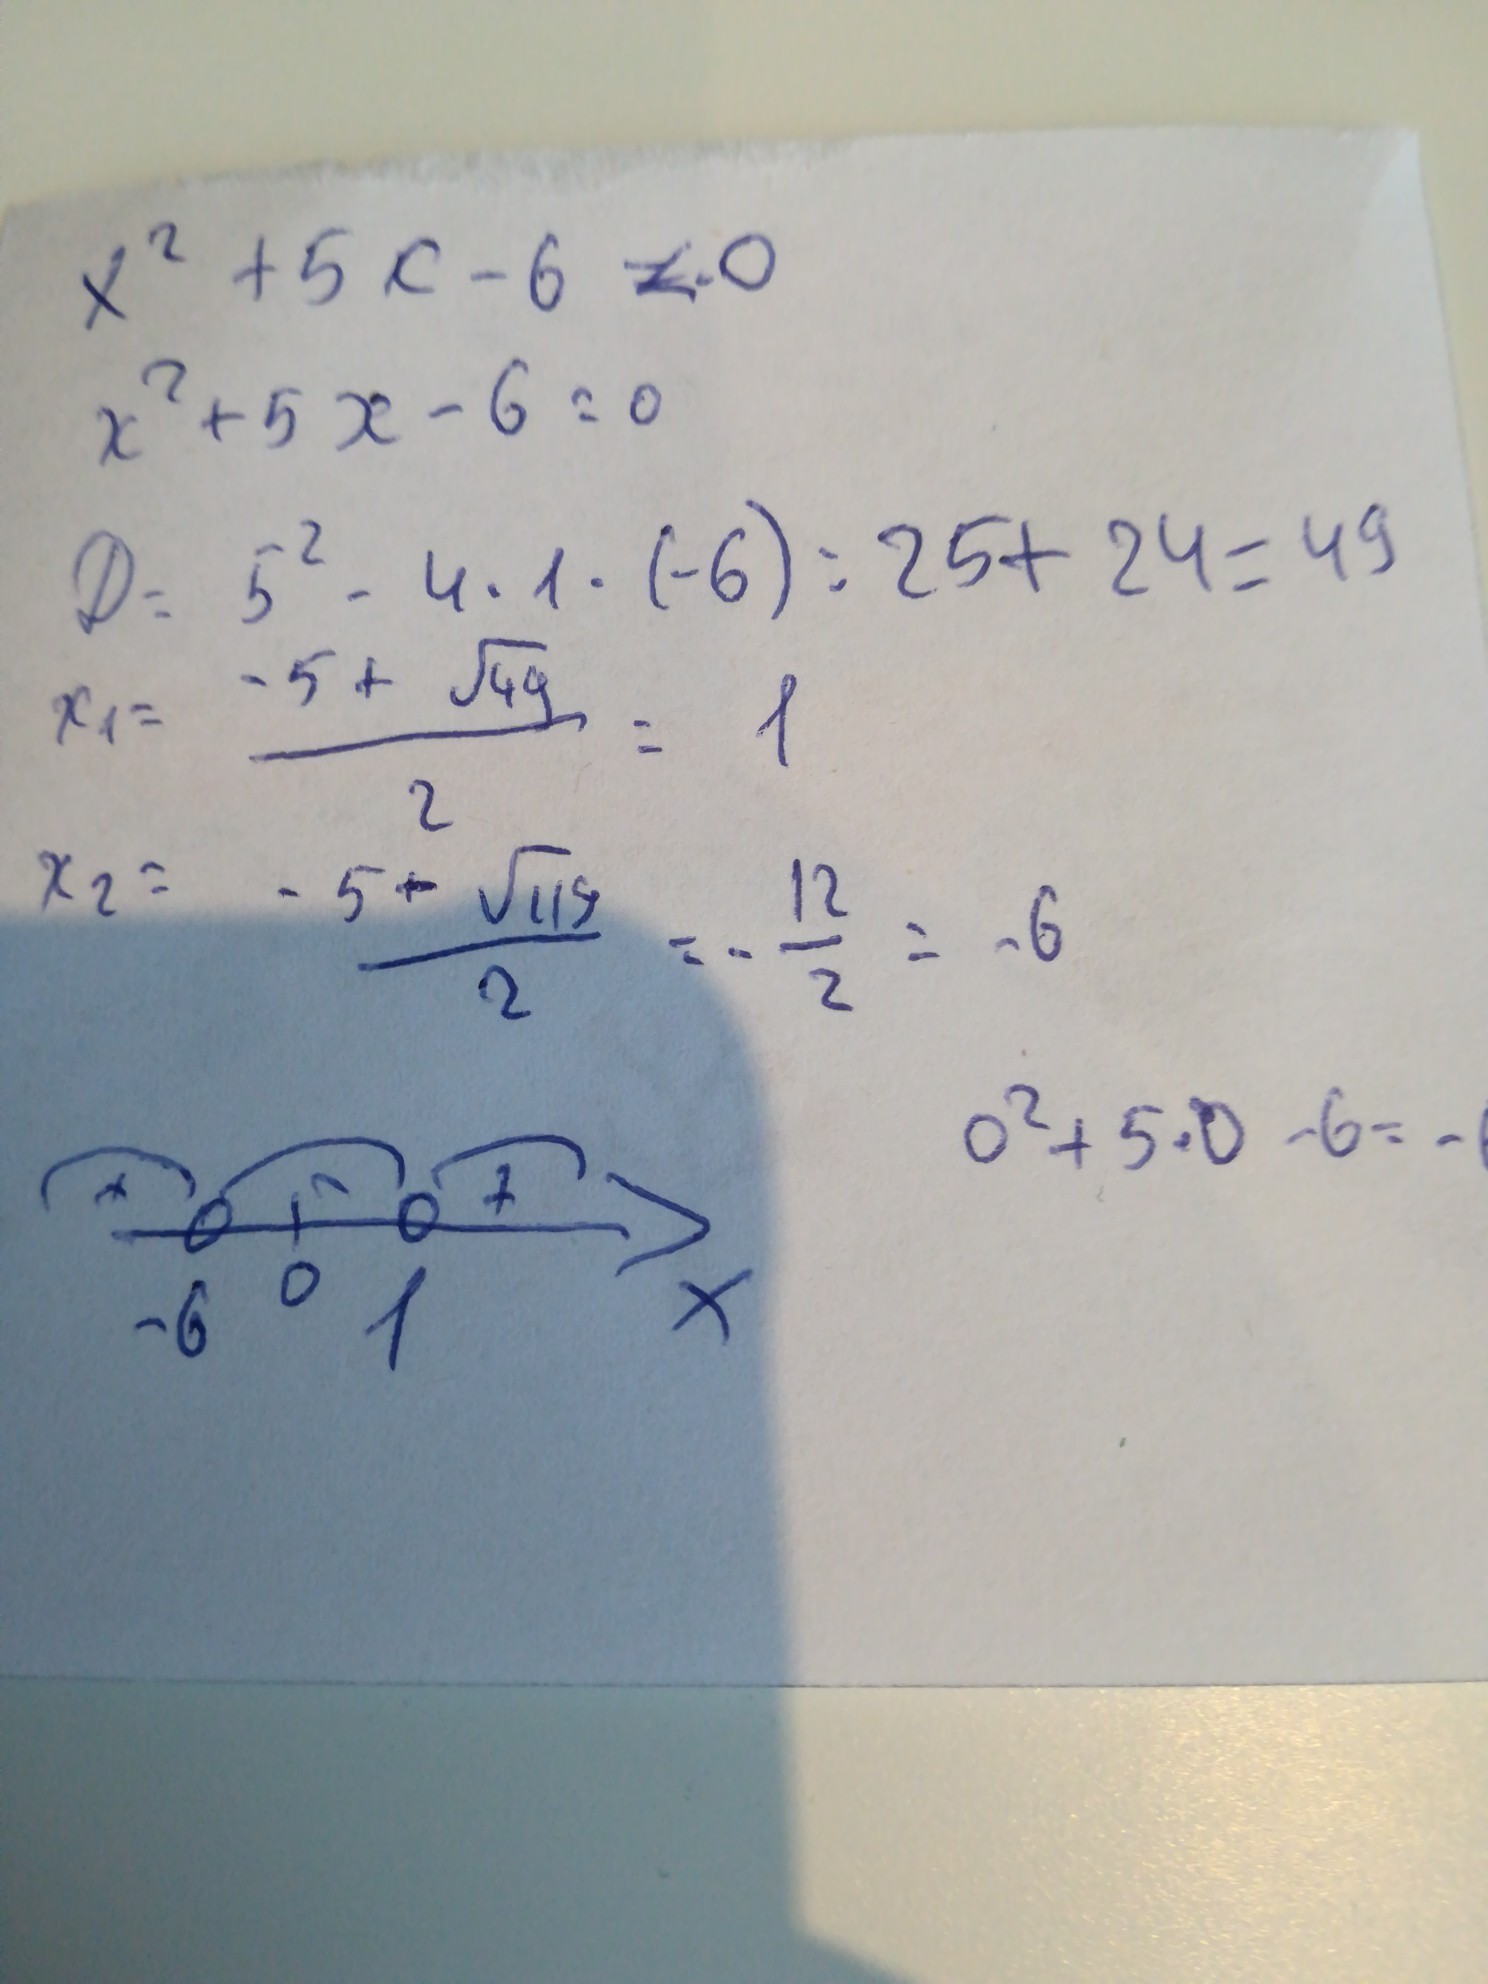 x² + 5x - 6 < 0
x² + 5x - 6 = 0
D = 5² - 4 · 1 · (-6) = 25 + 24 = 49
x₁ = (-5 + √49) / 2 = 1
x₂ = / 2 = - 12/2 = -6
0² + 5·0 - 6 = -
+ - +
-6 0 1 x